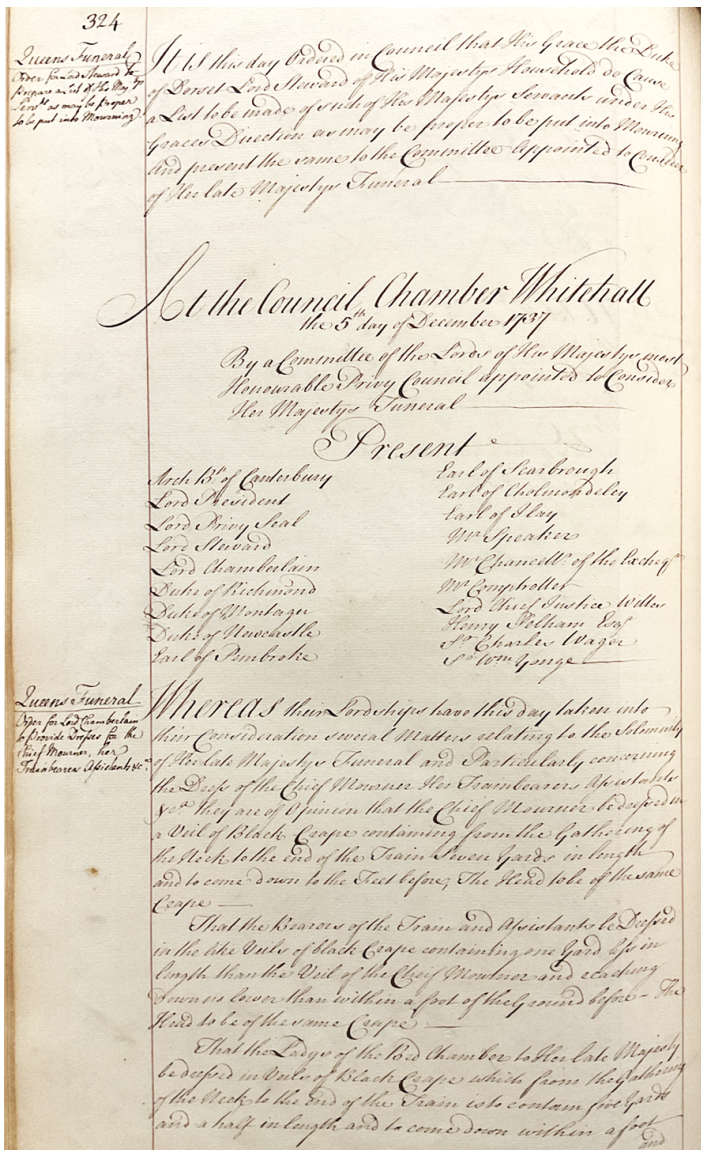 324
Queens Funeral
Order for Lord Steward to
prepare a List of His Maj.tys
Serv.ts as may be proper
to be put into Mourning.
It is this day Ordered in Council that His Grace the Duke
of Dorset Lord Steward of His Majestys Household do Cause
a List to be made of such of His Majestys Servants under His
Graces Direction as may be proper to be put into Mourning
And present the same to the Committee Appointed to Consider
of Her late Majestys Funeral
At the Council Chamber Whitehall
the 5th day of December 1737
By a Committee of the Lords of His Majestys most
Honourable Privy Council appointed to Consider
Her Majestys Funeral
Present
Arch Bp. of Canterbury
Lord President
Lord Privy Seal
Lord Steward
Lord Chamberlain
Duke of Richmond
Duke of Montagu
Duke of Newcastle
Earl of Pembroke
Earl of Scarbrough
Earl of Cholmondeley
Earl of Ilay
Mr. Speaker
Mr. Chancellr. of the Excheqr
Mr. Comptroller
Lord Chief Justice Willes
Henry Pelham Esqr
Sr. Charles Wager
Sr. Wm. Yonge
Queens Funeral
Order for Lord Chamberlain
to Provide Dresses for the
Chief Mourner, her
Trainbearers Assistants &ca.
Whereas their Lordships have this day taken into
their Consideration several Matters relating to the Solemnity
of Her late Majestys Funeral and Particularly concerning
the Dress of the Chief Mourner Her Trainbearers Assistants
&ca. they are of Opinion that the Chief Mourner be dressed in
a Veil of Black Crape containing from the Gathering of
the Neck to the end of the Train Seven Yards in length
and to come down to the Feet before, The Head to be of the same
Crape
That the Bearers of the Train and Assistants be Dressed
in the like Veils of black Crape containing one Yard less in
length than the Veil of the Chief Mourner and reaching
down no lower than within a foot of the Ground before - The
Head to be of the same Crape
That the Ladys of the Bed Chamber to Her late Majesty
be dressed in Veils of Black Crape which from the Gathering
of the Neck to the end of the Train is to contain five Yards
and a half in length and to come down within a foot
and